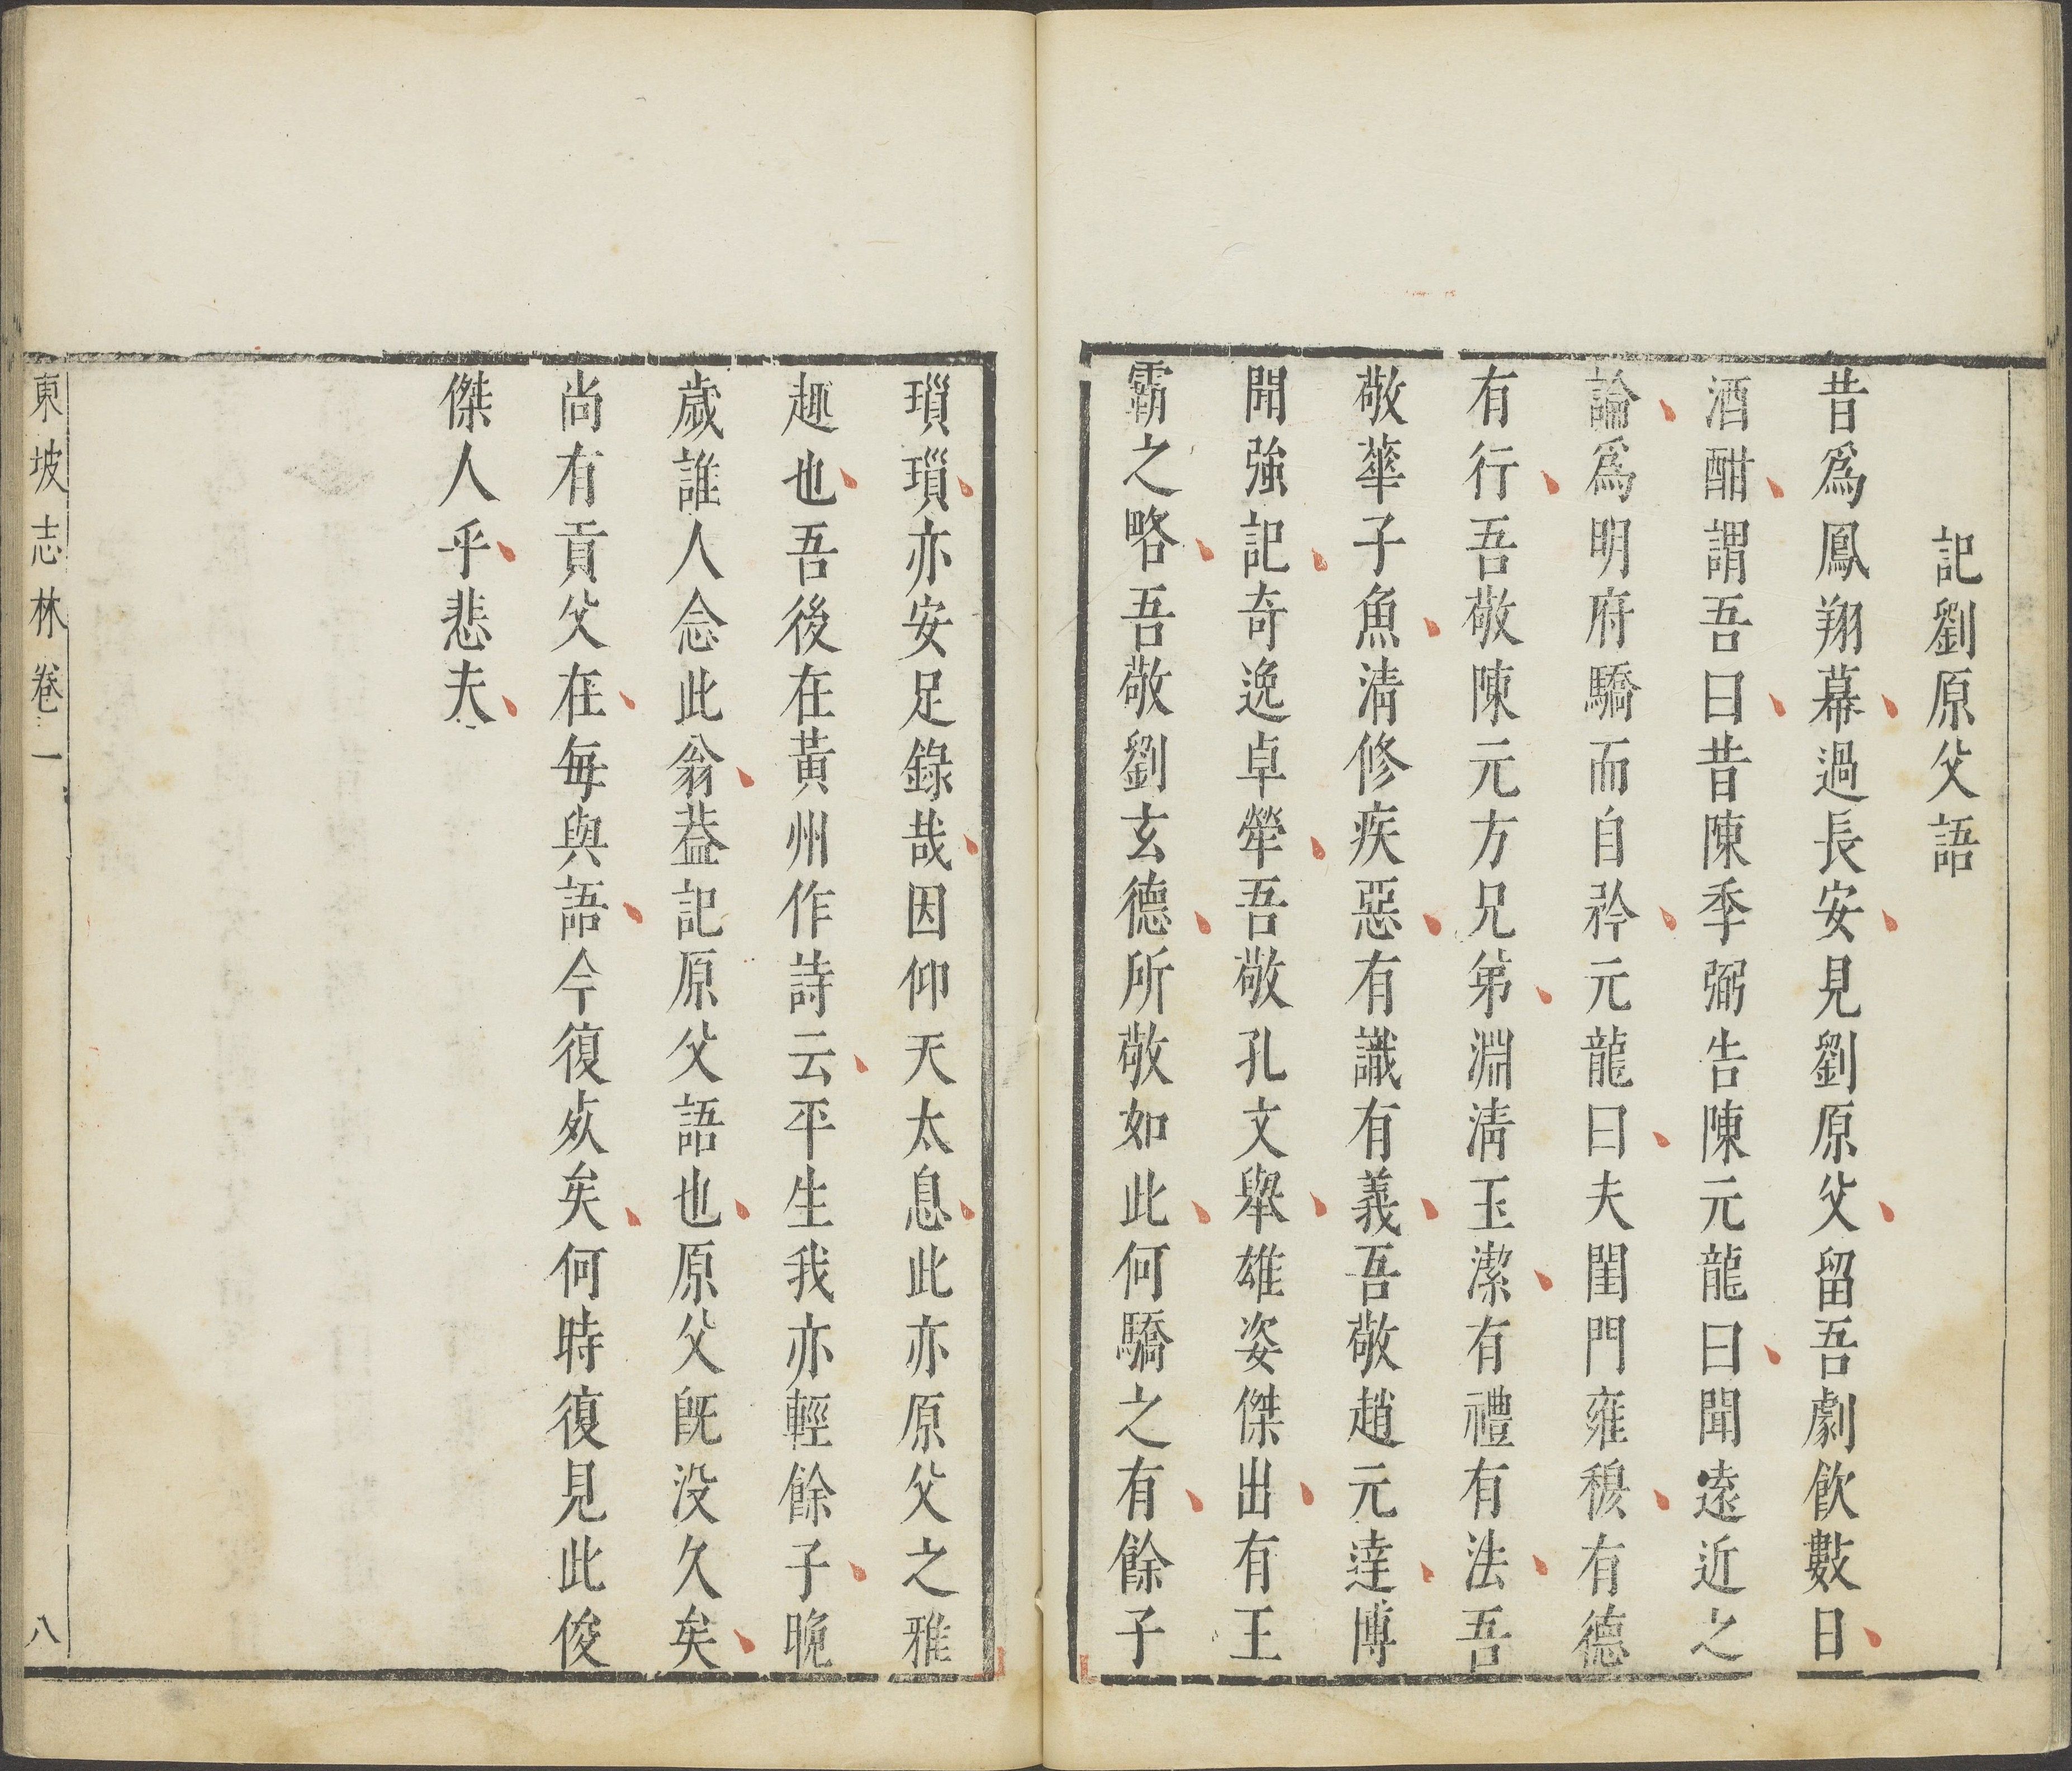 記劉原父語
昔爲鳳翔幕過長安見劉原父留吾劇飲數日
酒酣謂吾曰昔陳季弼告陳元龍曰聞遠近之
論爲明府驕而自矜元龍曰夫閨門雍穆有德
有行吾敬陳元方兄弟淵清玉潔有禮有法吾
敬華子魚清修疾惡有識有義吾敬趙元達博
聞強記奇逸卓犖吾敬孔文舉雄姿傑出有王
霸之略吾敬劉玄德所敬如此何驕之有餘子
瑣瑣亦安足錄哉因仰天太息此亦原父之雅
趣也吾後在黃州作詩云平生我亦輕餘子晚
歲誰人念此翁葢記原父語也原父旣没久矣
尚有貢父在每與語今復歿矣何時復見此俊
傑人乎悲夫
東坡志林卷一 八